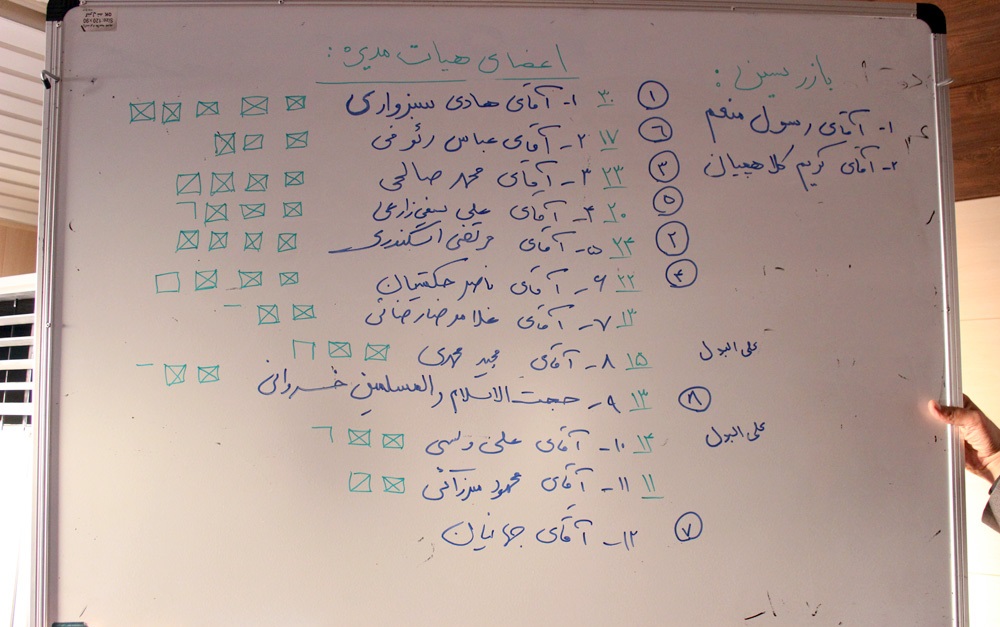 اعضای هیات مدیره:
۱ ۳۰ ۱- آقای هادی سبزواری
۶ ۱۷ ۲- آقای عباس رئوفی
۳ ۲۳ ۳- آقای محمد صالحی
۵ ۲۰ ۴- آقای علی
۲ ۲۴ ۵- آقای مرتضی اسکندری
۴ ۲۲ ۶- آقای ناصر حکمتیان
۱۳ ۷- آقای غلامرضا رضائی
علی البدل ۱۵ ۸- آقای مجید مهدی
۸ ۱۳ ۹- حجت الاسلام والمسلمین خسروانی
علی البدل ۱۴ ۱۰- آقای علی
۱۱ ۱۱- آقای محمود
۷ ۱۲- آقای جهانیان
بازرسین:
۱- آقای رسول منعم
۲- آقای کریم